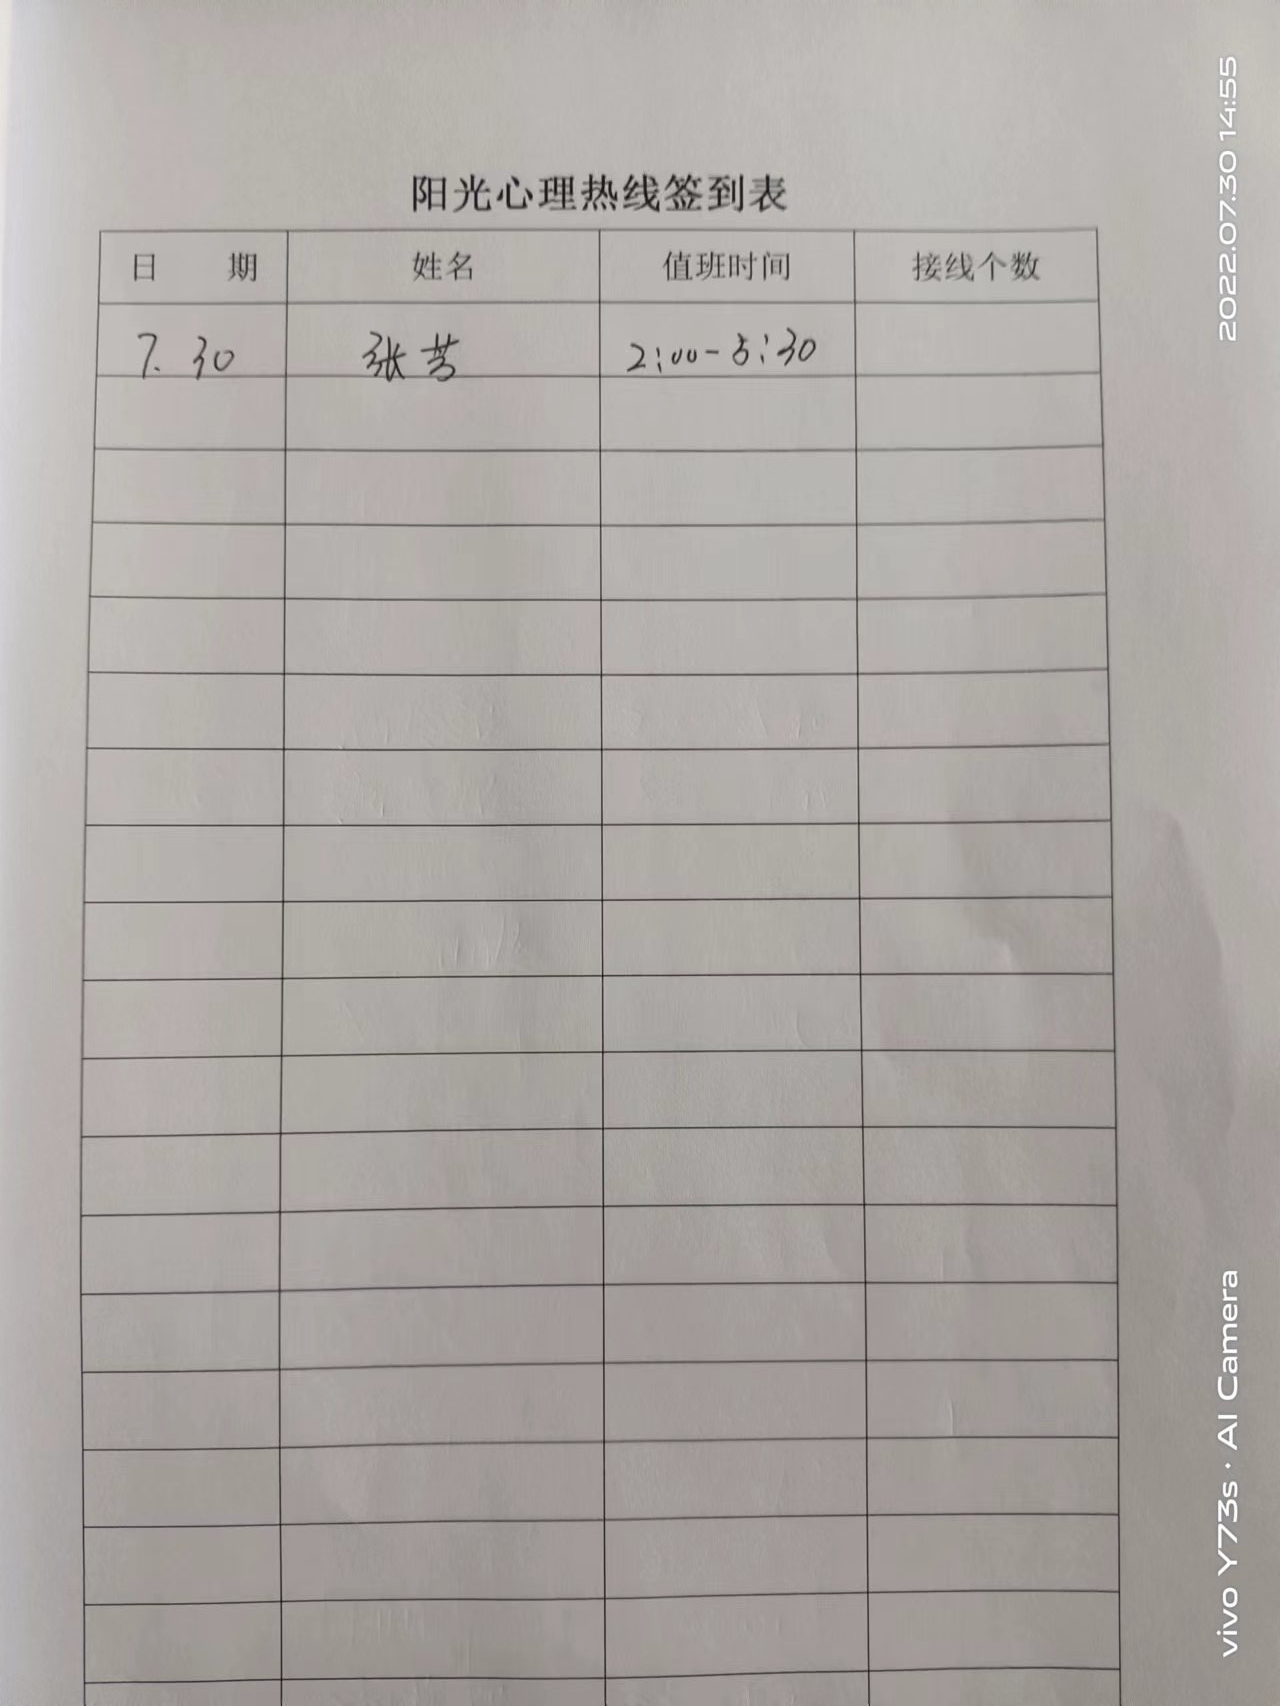 阳光心理热线签到表
日 期 姓名 值班时间 接线个数
7.30 张芳 2:00-5:30
2022.07.30 14:55
vivo Y73s · AI Camera